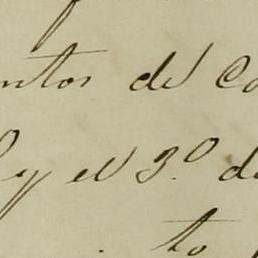 ntos de Co
y el 3.º de
to